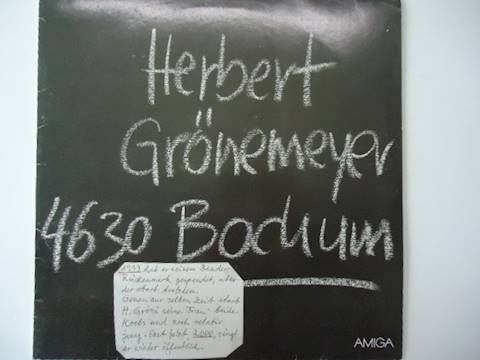 Herbert
Grönemeyer
4630 Bochum
hat er seinem Bruder
Rückenmark gespendet, aber
der starb trotzdem.
Genau zur selben Zeit starb
H. Gröni seine Frau beide
Krebs und noch relativ
jung. Erst jetzt 2.000, singt
er wieder öffentlich.
AMIGA